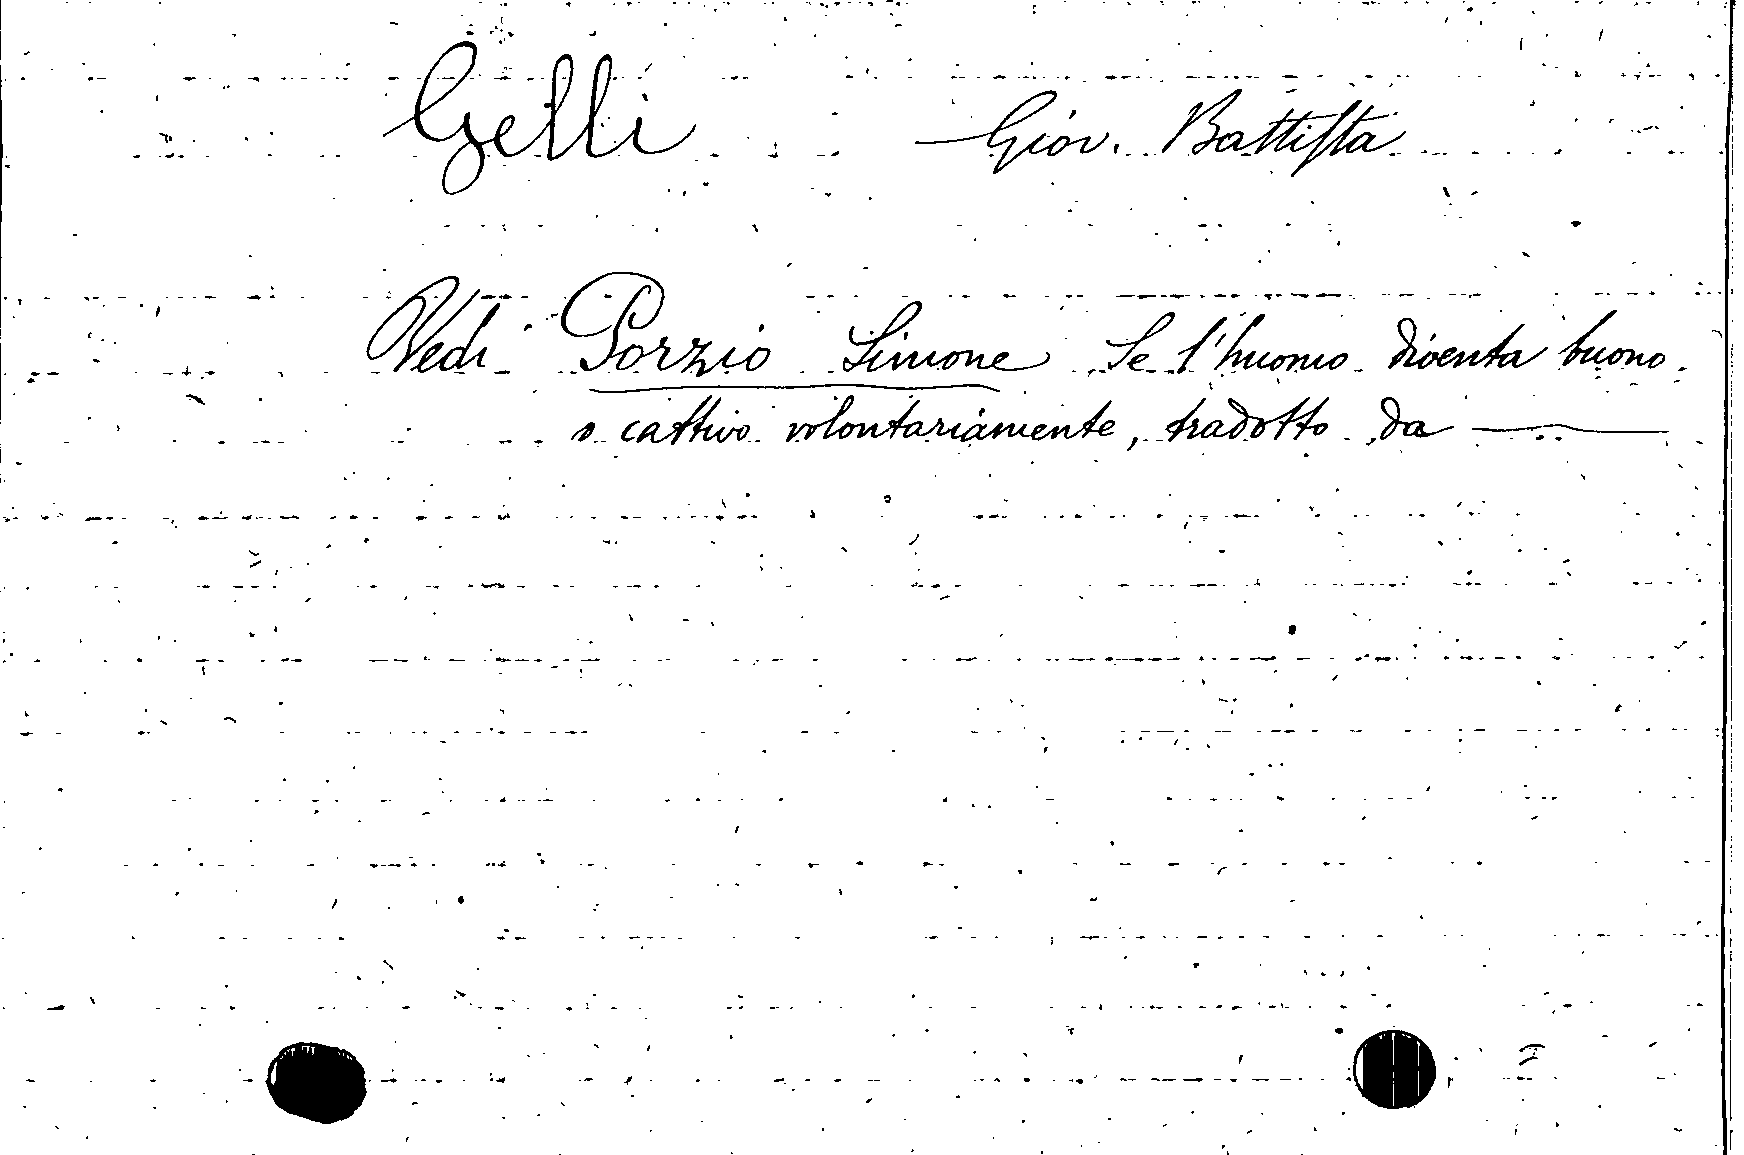 Gelli Giov. Battista
Vedi Porzio Simone Se l'huomo diventa buono
o cattivo volontariamente, tradotto da ———